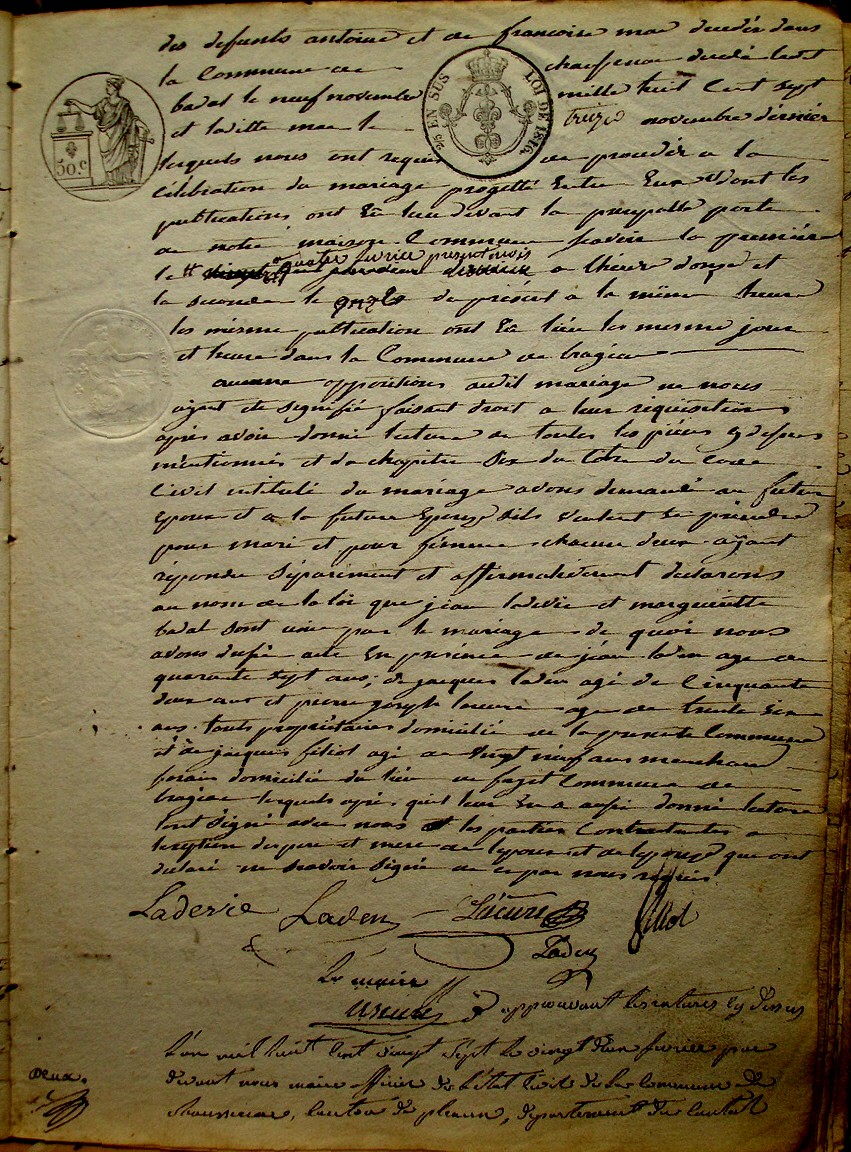 des defunts antoine et de francoise mae decedés dans
la Commune de chaussenac decedé ledit
badal le neuf novembre mille huit Cent sept
et laditte mae le treize novembre dernier
lesquels nous ont requis de proceder a la
Célébration du mariage progetté Entre Eux dont les
publications ont Eu lieu devant la principalle porte
de notre maison Commune scavoir la premiére
le quatre fevrier present mois a l'heure de et
la seconde le onze de présent a la même heure
les mésme publication ont Eu lieu les mesme jour
et heure dans la Commune de bragéac
aucune oppositions audit mariage ne nous
ayant eté signifié faisant droit a leur réquisition
aprés avoir donné lecture de toutes les piéces cy dessus
méntionnés et du chapitre Six du titre du Code
Civil intitulé du mariage avons demandé au futur
Epoux et a la future Epouse s'ils veulent se prendre
pour mari et pour fémme chacun deux ayant
répondu séparement et affirmativement declarons
au nom de la loi que jean laderie et margueritte
badal sont unie par le mariage de quoi nous
avons dressé acte En presence de jéan laden age de
quarante sept ans, de jacques laden agé de Cinquante
deux ans et pierre joseph lescure age de trente six
ans touts propriétaires domicilié de la presente Commune
et de jacques filiol agé de vingt néuf ans marchand
forain domicilié du lieu de fagét Commune de
bragéac lesquels aprés quil leur En a aussi donné lecture
lont signé avec nous et les parties Contractantes a
lexeption des pere et mere de lepoux et de lepouze que ont
declaré ne scavoir signé de ce par nous requis
Laderie Laden Lescure filiol
Laden
Le maire
approuvant les ratures cy dessus
L'an mil huit cent vingt sept le vingt deux fevrier par
devant nous maire officier de l'état Civil de la Commune de
Chaussenac, canton de pleaux, département du Cantal
deux.
50 c
25 EN SUS
LOI DE 1816.